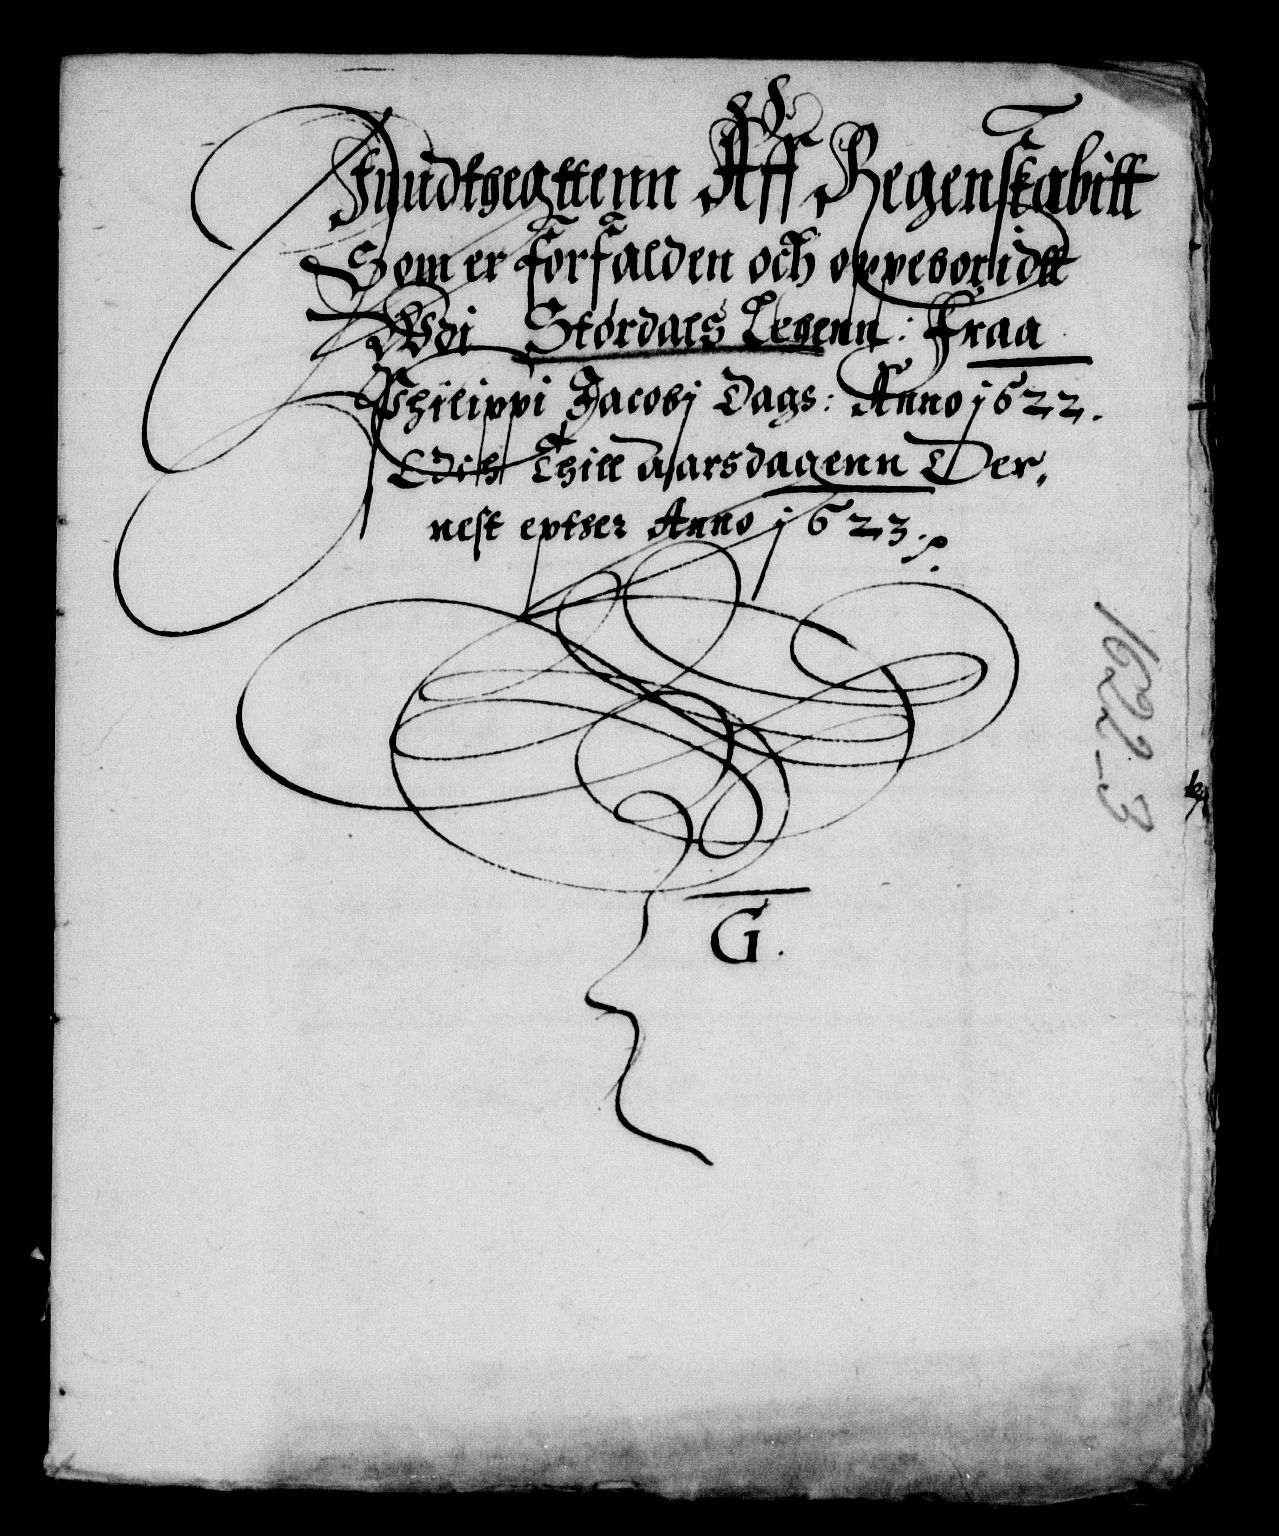 Inndthegttenn Aff Regenskabitt
Som er forfalden och oppeboridtt
Wdi Størdals Lehenn: Fraa
Philippi Jacobj Dags: Anno 1622.
Och Thill Aarsdagenn Der,
nest epther Anno 1623
G.
1622-3